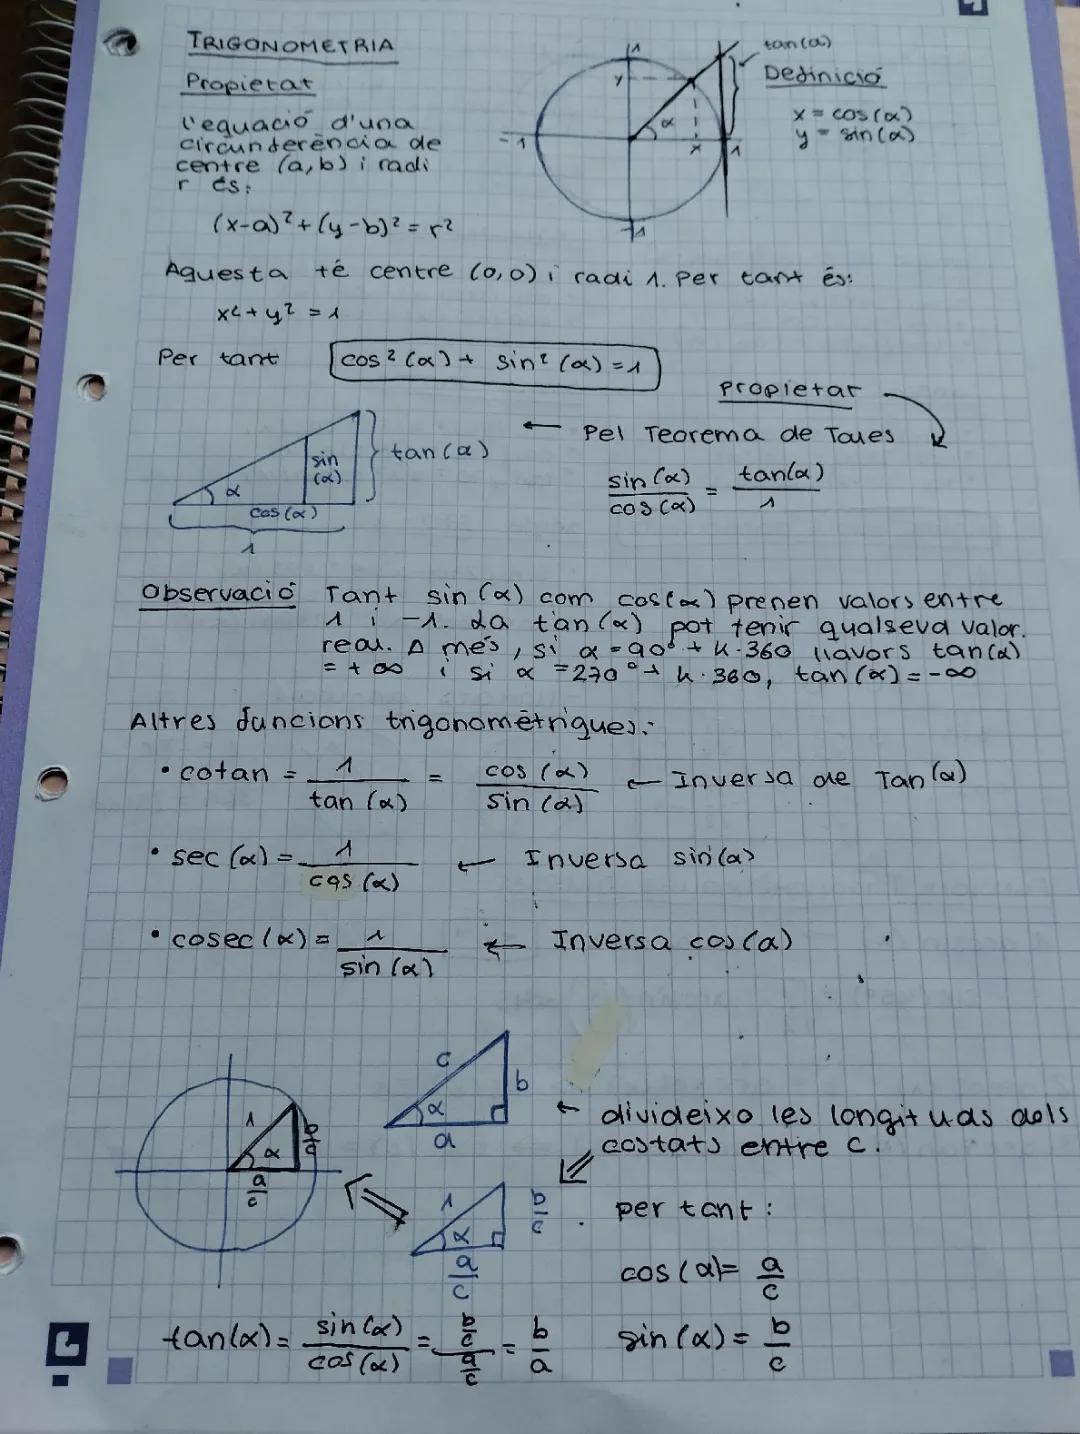 TRIGONOMETRIA
Propietat
l'equació d'una
circunferència de
centre (a,b) i radi
r és:
(x-a)² + (y-b)² = r²
1
y
α
-1
x
1
-1
tan(α)
Definició
x = cos(α)
y = sin(α)
Aquesta té centre (0,0) i radi 1. Per tant és:
x² + y² = 1
Per tant cos²(α) + sin²(α) = 1
α
sin
(α)
cos(α)
1
tan(α)
Propietat
← Pel Teorema de Tales
sin(α)/cos(α) = tan(α)/1
Observació Tant sin(α) com cos(α) prenen valors entre
1 i -1. La tan(α) pot tenir qualseva valor.
real. A més, si α = 90° + k·360 llavors tan(α)
= +∞ i si α = 270° + k·360, tan(α) = -∞
Altres funcions trigonomètriques:
• cotan = 1/tan(α) = cos(α)/sin(α) ← Inversa de Tan(α)
• sec(α) = 1/cos(α) ← Inversa sin(α)
• cosec(α) = 1/sin(α) ← Inversa cos(α)
1
α
b/c
a/c
c
b
α
a
← divideixo les longituds dels
costats entre c.
1
α
b/c
a/c
per tant:
cos(α) = a/c
tan(α) = sin(α)/cos(α) = (b/c)/(a/c) = b/a
sin(α) = b/c